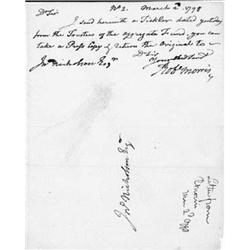 Dr Sir No 2. March 2d. 1798
I send herewith a Tickler dated yesterday
from the Trustees of the Aggregate Fund, you can
take a Press Copy & return the Original to
Dr Sir
Jno. Nicholson Esqr
Robt Morris
Jno. Nicholson Esqr
from